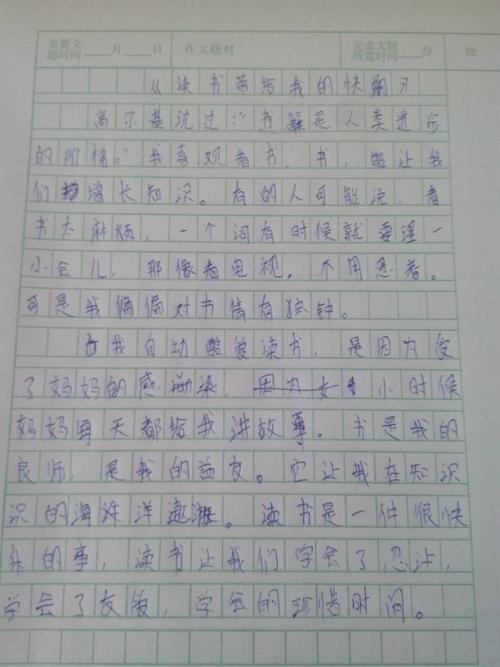 布置文题时间____月____日 作文题材 完成文题所需时间____分 批
《读书带给我的快乐》
高尔基说过:“书籍是人类进步
的阶梯。”我喜观看书，书，能让我
们增长知识。有的人可能说，看
书太麻烦，一个词有时候就要理一
小会儿，那像看电视，不用思考。
可是我偏偏对书情有独钟。
我自幼酷爱读书，是因为受
了妈妈的感染，小时候
妈妈每天都给我讲故事。书是我的
良师，是我的益友。它让我在知识
识的海洋遨游。读书是一件很快
乐的事，读书让我们学会了忍让，
学会了友爱，学会的珍惜时间。